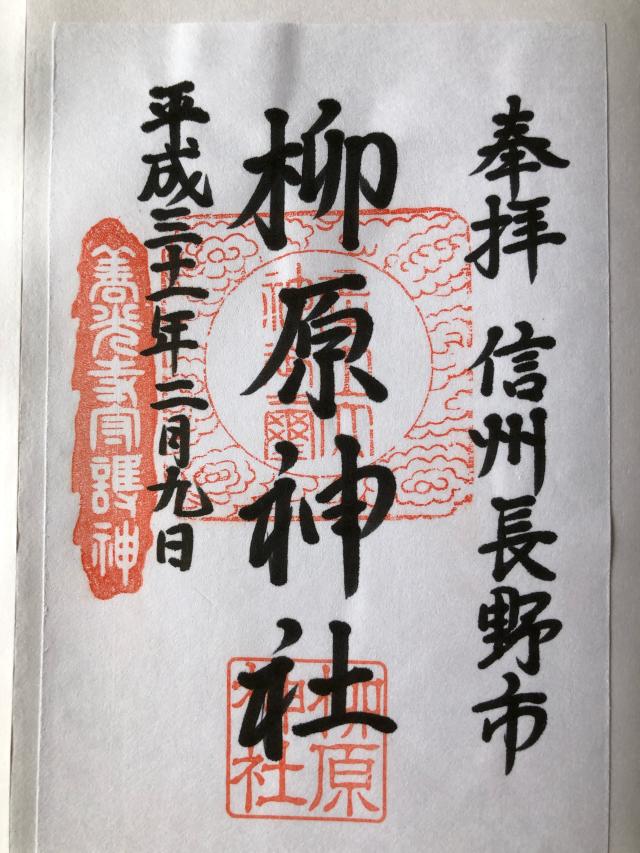 奉拝 信州長野市
柳原神社
平成三十一年二月九日
善光寺守護神
柳原
神社